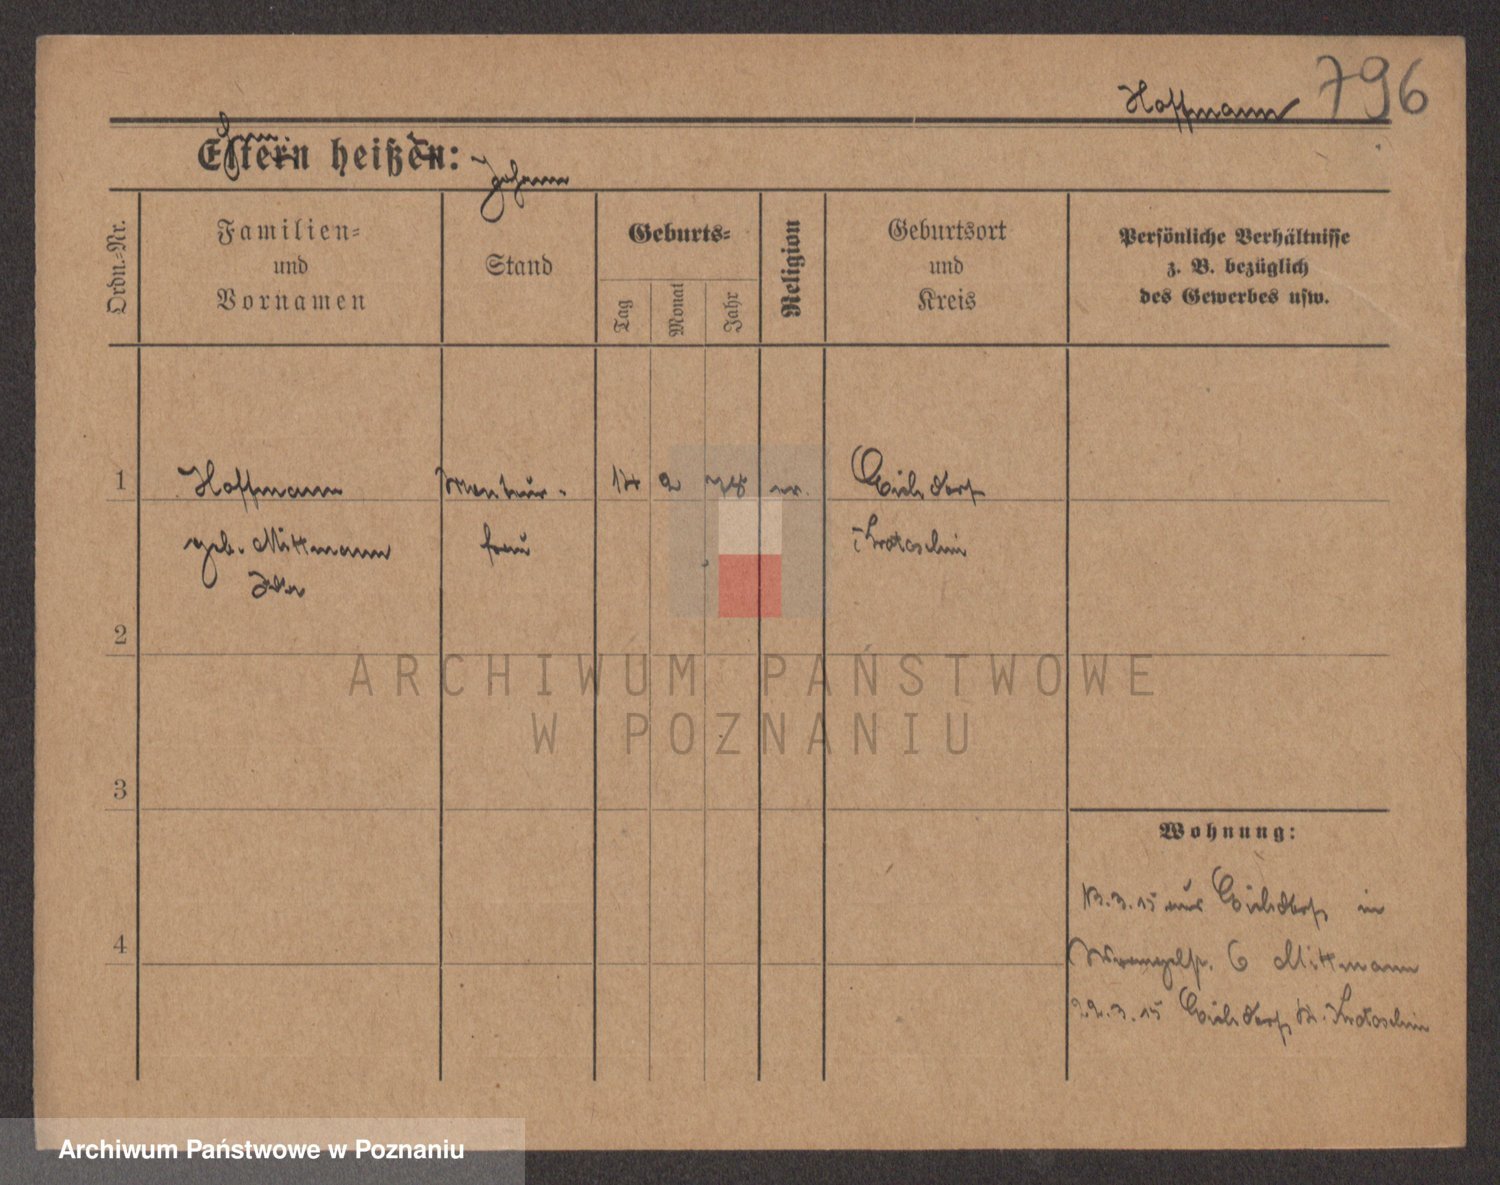 Hoffmann 796
Eltern heißen:
Johann
Ordn.-Nr.
Familien-
und
Vornamen
Stand
Geburts-
Tag
Monat
Jahr
Religion
Geburtsort
und
Kreis
Persönliche Verhältnisse
z. B. bezüglich
des Gewerbes usw.
1 Hoffmann Monteur- 14 2 78
geb. Mittmann frau Krotoschin
2
3
Wohnung:
13.3.15 aus in
4
Wrangelstr. 6 Mittmann
22.3.15 Kr. Krotoschin
ARCHIWUM PAŃSTWOWE
W POZNANIU
Archiwum Państwowe w Poznaniu